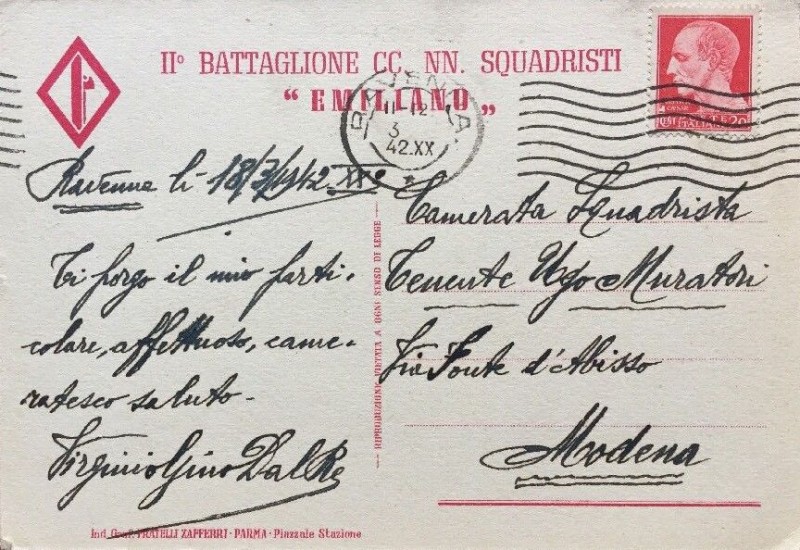 IIº BATTAGLIONE CC. NN. SQUADRISTI
“ EMILIANO „
RAVENNA
11-12
3
42.XX
ITALIANE
Ravenna li 18/3/1942 XXº
Ti porgo il mio parti-
colare, affettuoso, came-
ratesco saluto-
Virginio Gino Dal Re
RIPRODUZIONE VIETATA A OGNI SENSO DI LEGGE
Camerata Squadrista
Tenente Ugo Muratori
Via Fonte d'Abisso
Modena
Ind. Graf. FRATELLI ZAFFERRI - PARMA - Piazzale Stazione